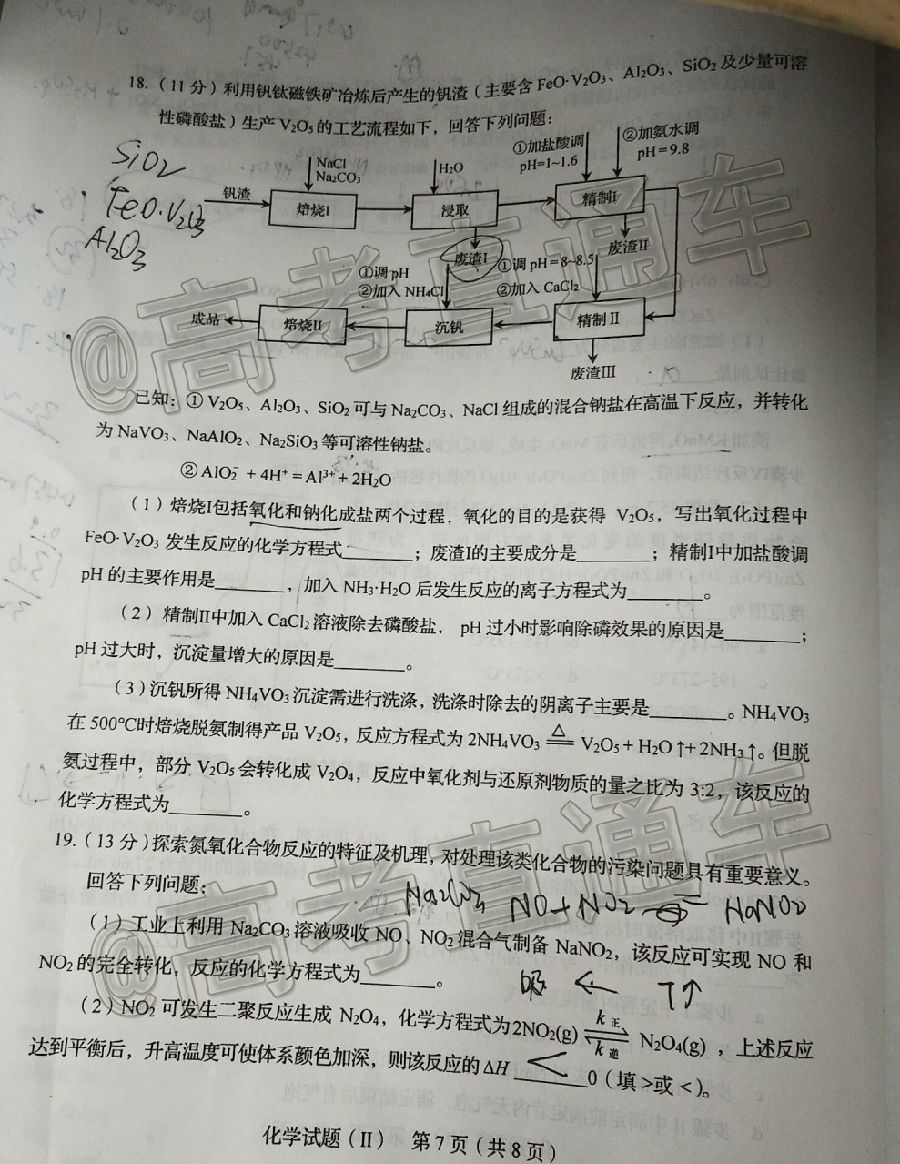 18.（11分）利用钒钛磁铁矿冶炼后产生的钒渣（主要含 FeO·V₂O₃、Al₂O₃、SiO₂ 及少量可溶
性磷酸盐）生产 V₂O₅ 的工艺流程如下，回答下列问题：
①加盐酸调
pH=1~1.6
②加氨水调
pH=9.8
NaCl
Na₂CO₃
H₂O
SiO₂
FeO·V₂O₃
Al₂O₃
钒渣
焙烧Ⅰ
浸取
精制Ⅰ
废渣Ⅰ
废渣Ⅱ
①调 pH
②加入 NH₄Cl
①调 pH=8~8.5
②加入 CaCl₂
成品
焙烧Ⅱ
沉钒
精制Ⅱ
废渣Ⅲ
@高考直通车
已知：① V₂O₅、Al₂O₃、SiO₂ 可与 Na₂CO₃、NaCl 组成的混合钠盐在高温下反应，并转化
为 NaVO₃、NaAlO₂、Na₂SiO₃ 等可溶性钠盐。
② AlO₂⁻ + 4H⁺ = Al³⁺ + 2H₂O
（1）焙烧Ⅰ包括氧化和钠化成盐两个过程，氧化的目的是获得 V₂O₅，写出氧化过程中
FeO·V₂O₃ 发生反应的化学方程式______；废渣Ⅰ的主要成分是______；精制Ⅰ中加盐酸调
pH 的主要作用是______，加入 NH₃·H₂O 后发生反应的离子方程式为______。
（2）精制Ⅱ中加入 CaCl₂ 溶液除去磷酸盐，pH 过小时影响除磷效果的原因是______；
pH 过大时，沉淀量增大的原因是______。
（3）沉钒所得 NH₄VO₃ 沉淀需进行洗涤，洗涤时除去的阴离子主要是______。NH₄VO₃
在 500℃时焙烧脱氨制得产品 V₂O₅，反应方程式为 2NH₄VO₃ ≜ V₂O₅ + H₂O↑+ 2NH₃↑。但脱
氨过程中，部分 V₂O₅ 会转化成 V₂O₄，反应中氧化剂与还原剂物质的量之比为 3:2，该反应的
化学方程式为______。
@高考直通车
19.（13分）探索氮氧化合物反应的特征及机理，对处理该类化合物的污染问题具有重要意义。
回答下列问题：
Na₂CO₃ NO+NO₂ = NaNO₂
（1）工业上利用 Na₂CO₃ 溶液吸收 NO、NO₂ 混合气制备 NaNO₂，该反应可实现 NO 和
NO₂ 的完全转化，反应的化学方程式为______。
← T↑
（2）NO₂ 可发生二聚反应生成 N₂O₄，化学方程式为2NO₂(g) k正 ⇌ k逆 N₂O₄(g)，上述反应
达到平衡后，升高温度可使体系颜色加深，则该反应的 ΔH ___<___ 0（填 > 或 <）。
化学试题（Ⅱ） 第 7 页（共 8 页）